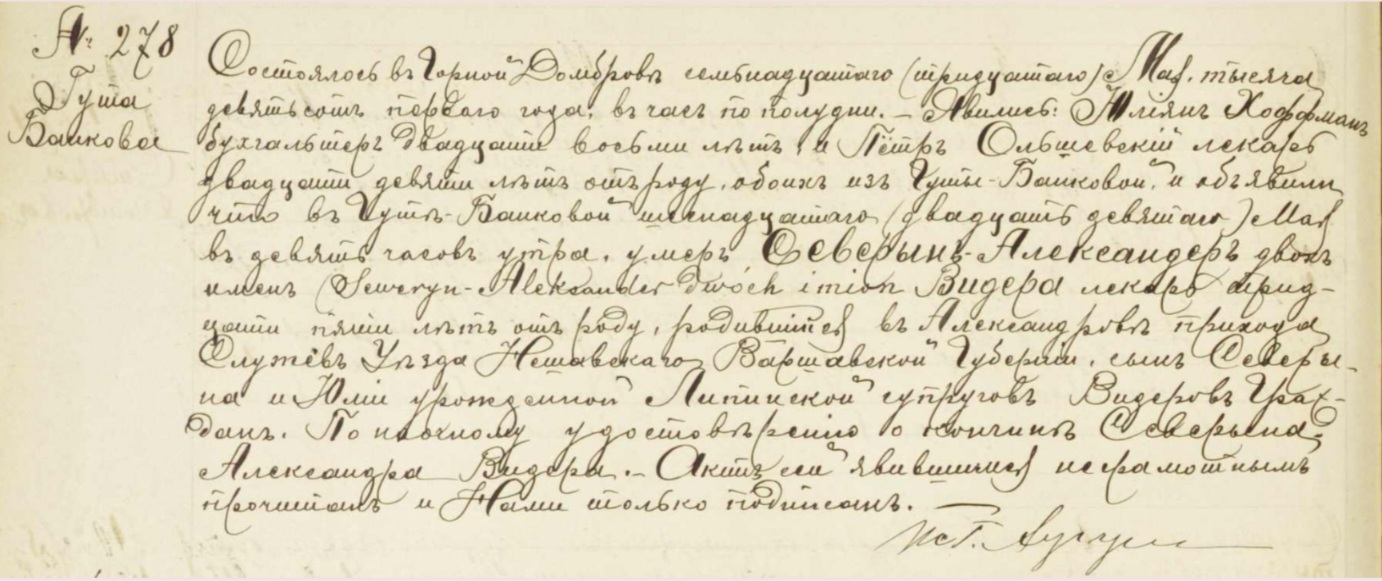 № 278
Гута
Банковое
Состоялось въ Горной Домбровѣ семьнадцатаго (тридцатаго) Мая, тысяча
девятьсотъ перваго года, въ часъ по полудни. – Явились: Юліянъ Хоффманъ
бухгальтеръ двадцати восьми лѣтъ, и Пётръ Ольшевскій лекарь
двадцати девяти лѣтъ отъ роду, обоихъ изъ Гуты-Банковой, и объявили
что въ Гутѣ-Банковой шеснадцатаго (двадцать девятаго) Мая
въ девять часовъ утра, умеръ Северынъ-Александеръ двохъ
именъ (Seweryn-Aleksander dwóch imion Видера лекарь трид-
цати пяти лѣтъ отъ роду, родившійся въ Александровѣ прихода
Служёвъ Уѣзда Нешавскаго Варшавской Губерніи, сынъ Северы-
на и Юліи урожденной Липинской супруговъ Видеровъ Граж-
данъ. По наочному удостовѣренію о кончинѣ Северына-
Александра Видера. – Актъ сей явившимся неграмотнымъ
прочитанъ и Нами только подписанъ.